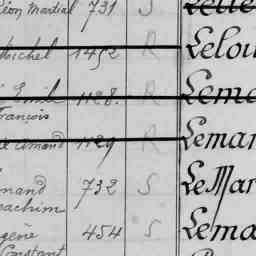 Léon Martial 731 S
Michel 1452 R Lelou
Émile 1128. R Lema
François
Armand 1129 R Leman
nand 732 S LeMar
Joachim
gène 454 S Lema
Constant